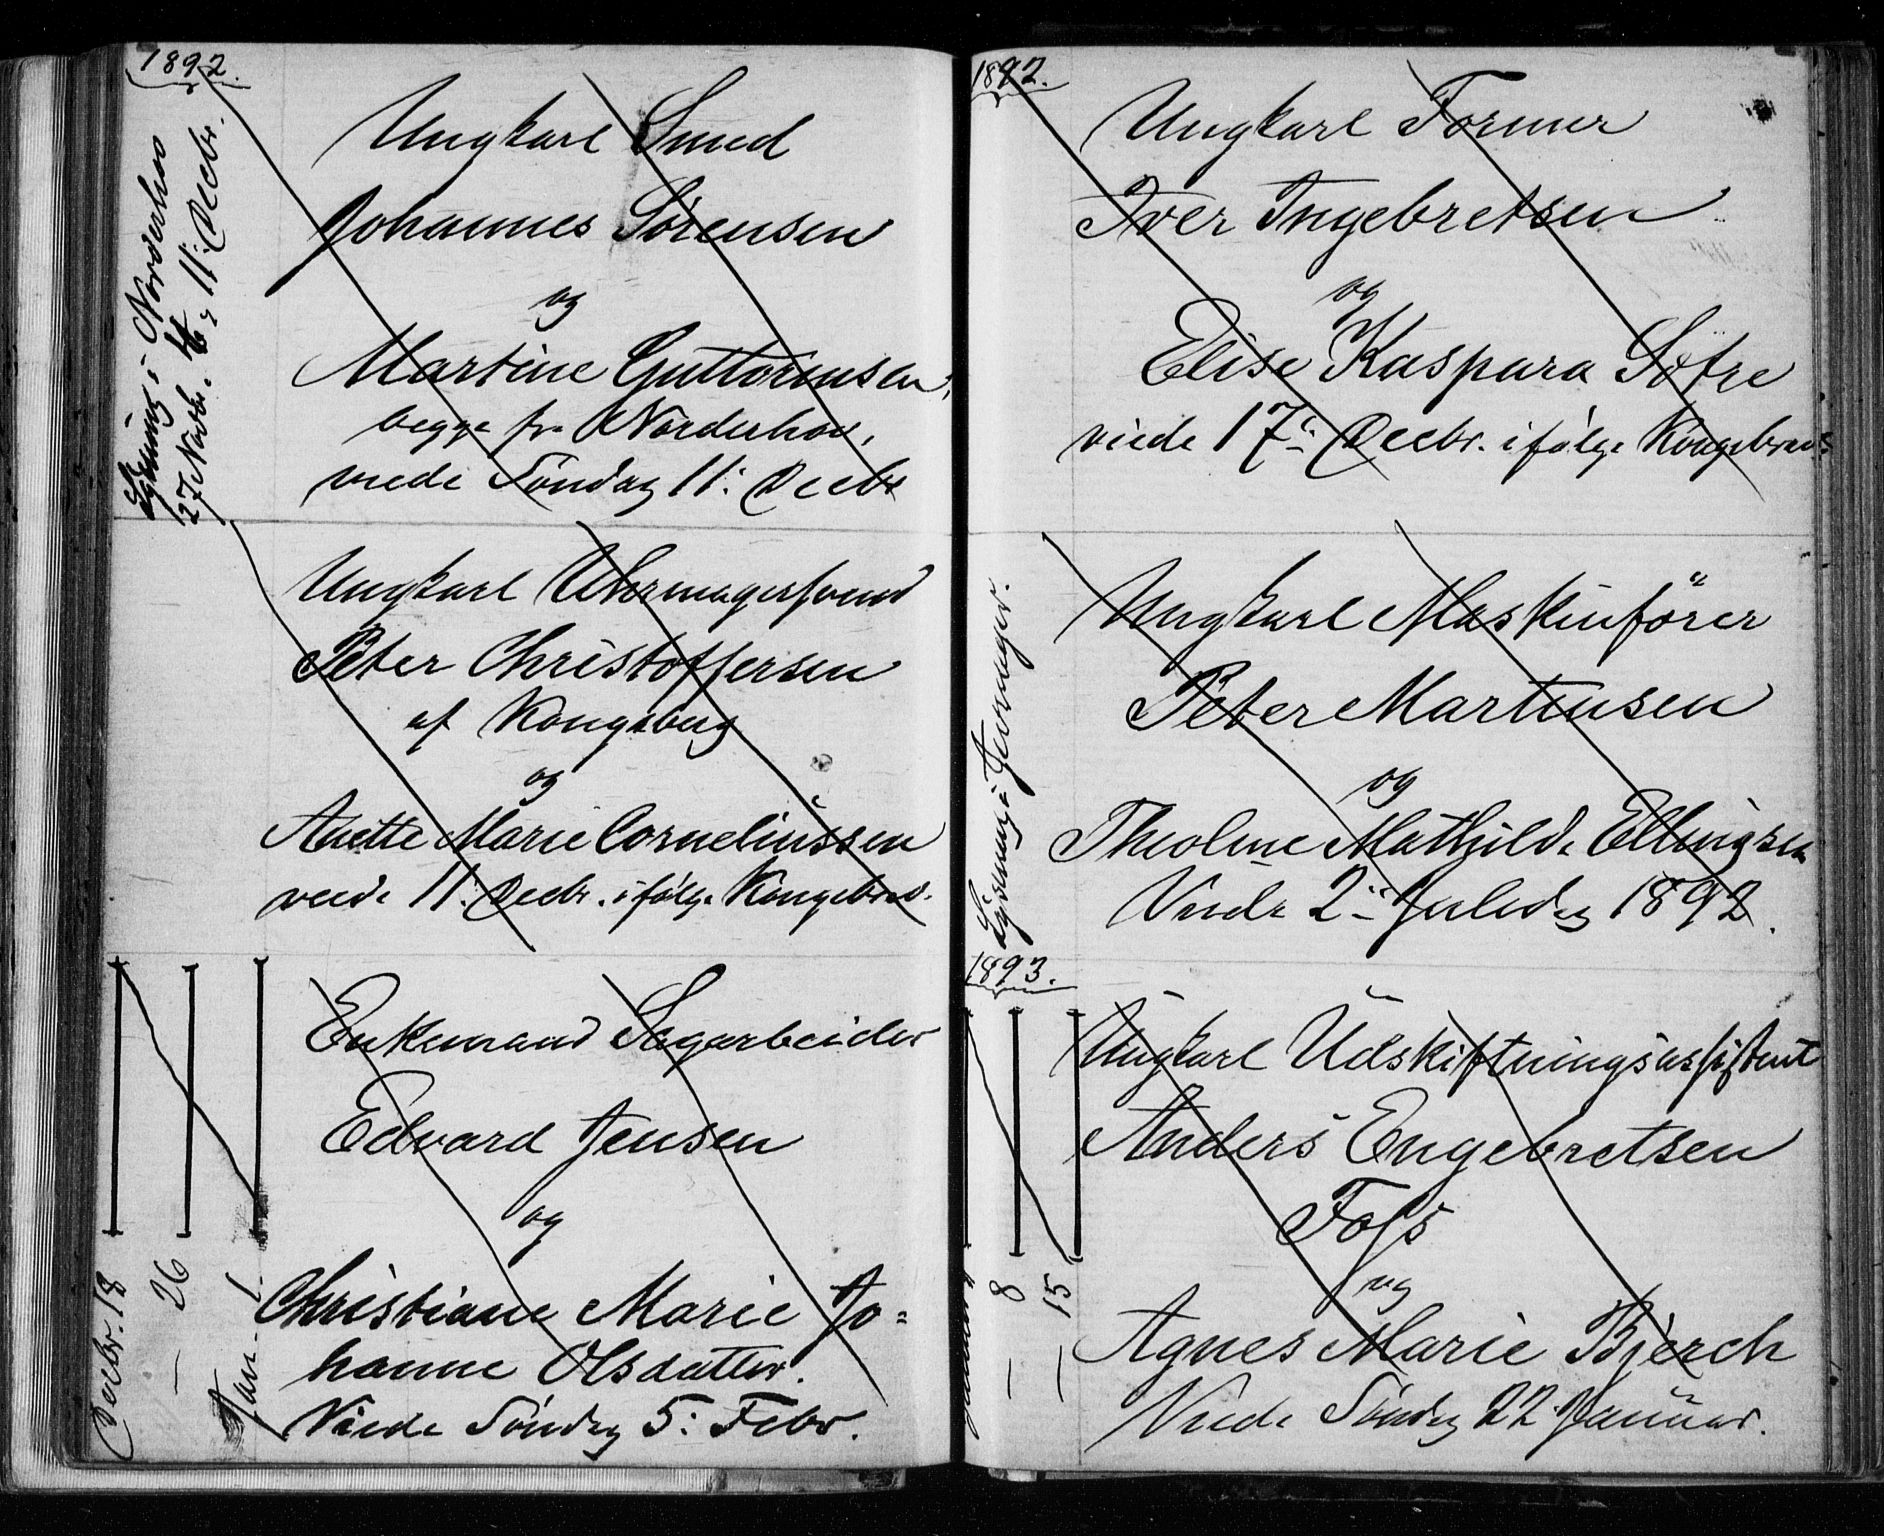 1892.
Lysning i Norderhov
27 Novbr. 4 & 11: Decbr.
Ungkarl Smed
Johannes Sørensen
og
Martine Guttormsen,
begge fra Norderhov,
viede Søndag 11: Decbr
Ungkarl Uhrmagersvend
Peter Christoffersen
af Kongsberg
og
Anette Marie Corneliussen
viede 11: Decbr. ifølge Kongebrev.
Decbr. 18
— 26
Jan. 1.
Enkemand Sagarbeider
Edvard Jensen
og
Christiane Marie Jo=
hanne Olsdatter.
Viede Søndag 5: Febr.
1892.
Ungkarl Former
Iver Ingebretsen
og
Elise Kaspara Sótre
viede 17de Decbr. ifølge Kongebrev.
Lysning i Jevnager.
Ungkarl Maskinfører
Peter Martinsen
og
Theoline Mathilde Ellingsen
Viede 2de Juledag 1892.
1893.
Januar 1
— 8
— 15
Ungkarl Udskiftningsassistent
Anders Engebretsen
Foss
og
Agnes Marie Bjerch
Viede Søndag 22 Januar.